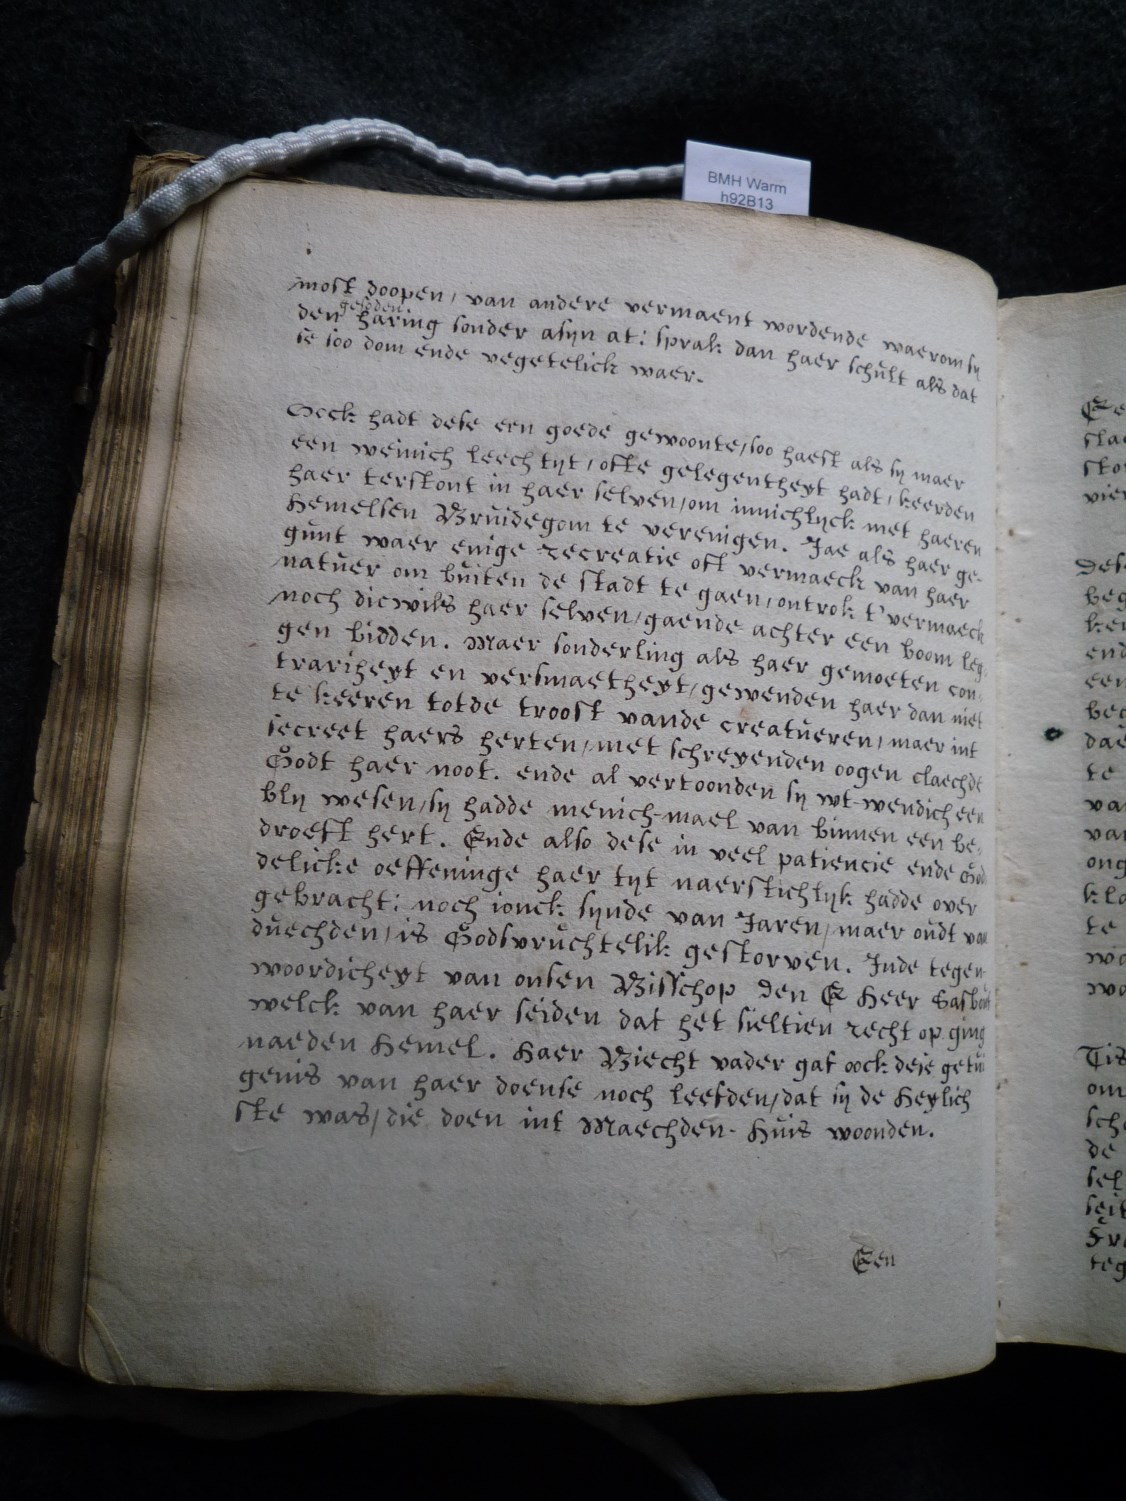 BMH Warm
h92B13
most doopen, van andere vermaent wordende waerom sy
gesoden
den haring sonder asyn at: sprak dan haer schult als dat
se soo dom ende vegetelick waer.
Oock hadt dese een goede gewoonte, soo haest als sy maer
een weinich leech tyt, ofte gelegentheyt hadt, keerden
haer terstont in haer selven, om innichlyck met haeren
Hemelsen Bruidegom te verenigen. Jae als haer ge-
gunt waer enige recreatie oft vermaeck van haer
natuer om buiten de stadt te gaen, ontrok t'vermaeck
noch dicwils haer selven, gaende achter een boom leg-
gen bidden. Maer sonderling als haer gemoeten con-
trariheyt en versmaetheyt, gewenden haer dan niet
te keeren totde troost vande creatueren, maer int
secreet haers herten, met schreyenden oogen claechde
Godt haer noot. ende al vertoonden sy wt-wendich een
bly wesen, sy hadde menich-mael van binnen een be-
droeft hert. Ende also dese in veel patiencie ende God
delicke oeffeninge haer tyt naerstichlyk hadde over
gebracht: noch ionck synde van Jaren, maer oudt van
duechden, is Godsvruchtelik gestorven. Inde tegen-
woordicheyt van onsen Bisschop den E Heer Sasbout
welck van haer seiden dat het sieltien recht op ging
naeden Hemel. Haer Biecht vader gaf oock dese getui
genis van haer doense noch leefden, dat sy de Heylich
ste was, die doen int Maechden-Huis woonden.
Een